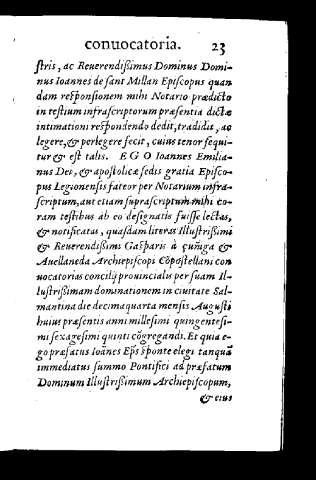 conuocatoria. 23
stris, ac Reuerendißimus Dominus Domi-
nus Ioannes de sant Millan Episcopus quan
dam responsionem mihi Notario prædicto
in testium infrascriptorum præsentia dictæ
intimationi respondendo dedit, tradidit, ac
legere, & perlegere fecit, cuius tenor sequi-
tur & est talis. EGO Ioannes Emilia-
nus Dei, & apostolicæ sedis gratia Episco-
pus Legionensis fateor per Notarium infra-
scriptum, aut etiam suprascriptum mihi co-
ram testibus ab eo designatis fuisse lectas,
& notificatas, quasdam literas Illustrißimi
& Reuerendißimi Gasparis à çuñiga &
Auellaneda Archiepiscopi Cõpostellani con
uocatorias concilij prouincialis per suam Il-
lustrißimam dominationem in ciuitate Sal-
mantina die decimaquarta mensis Augusti
huius præsentis anni millesimi quingentesi-
mi sexagesimi quinti cõgregandi. Et quia e-
go præfatus Ioãnes Ep̃s sponte elegi tanquã
immediatus summo Pontifici ad præfatum
Dominum Illustrißimum Archiepiscopum,
& eius